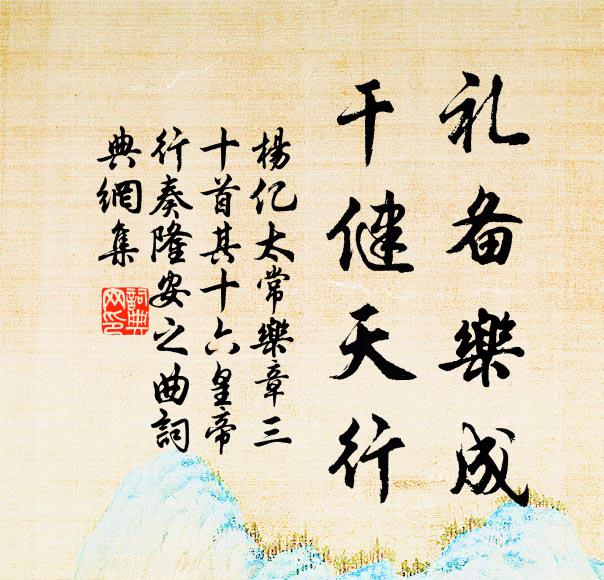 礼备樂成
干健天行
楊亿太常樂章三
十首其十六皇帝
行奏隆安之曲詞
典網集
詞典网印